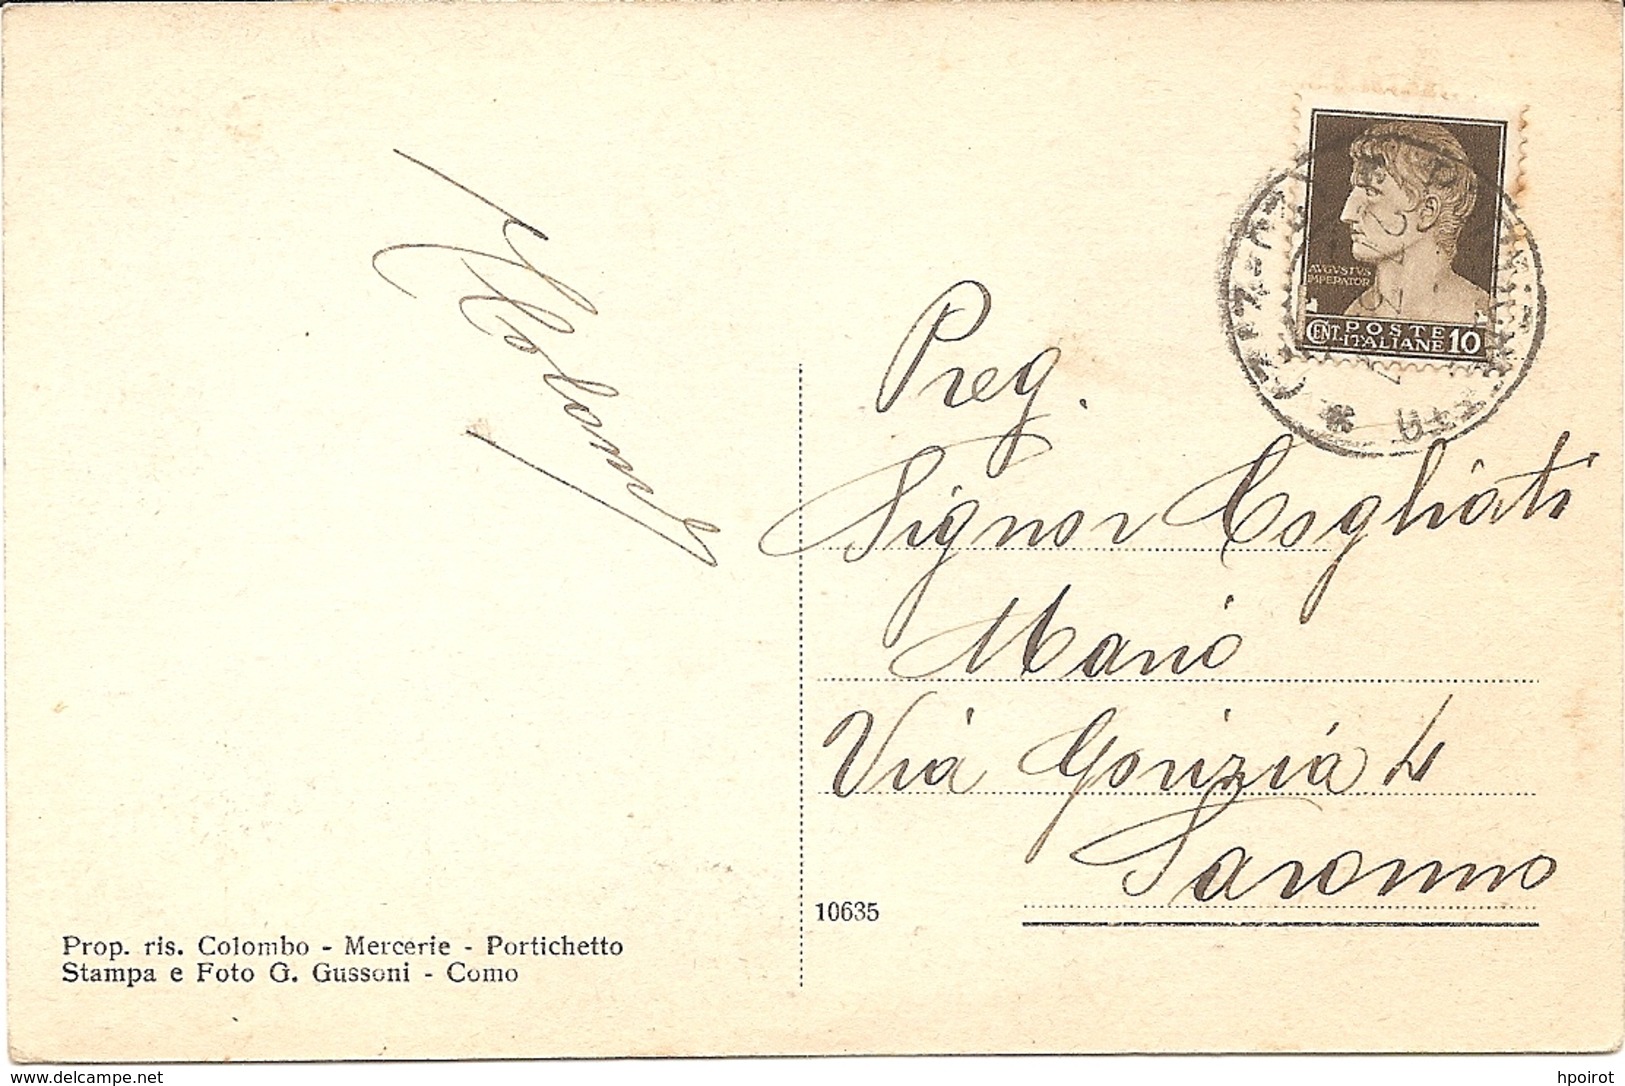 AVGVSTVS
IMPERATOR
CENT. POSTE
ITALIANE 10
Preg.
Signor Cogliati
Mario
Via Gorizia 4
Saronno
10635
Prop. ris. Colombo - Mercerie - Portichetto
Stampa e Foto G. Gussoni - Como
www.delcampe.net
hpoirot